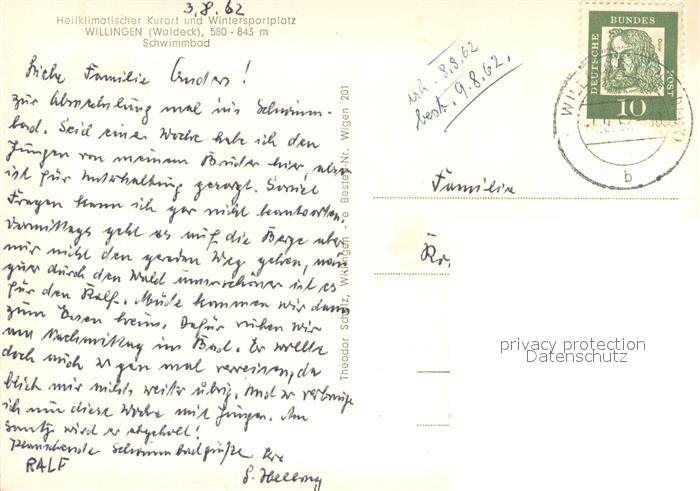 3.8.62
Heilklimatischer Kurort und Wintersportplatz
WILLINGEN (Waldeck), 580 - 843 m
Schwimmbad
Liebe Familie Enders!
zur Abwechslung mal ins Schwimm-
bad. Seid einer Woche habe ich den
Jungen von meinem Bruder hier, also
ist für Unterhaltung gesorgt. Soviel
Fragen kann ich gar nicht beantworten.
Vormittags geht es auf die Berge aber
nur nicht den geraden Weg gehen, nein
quer durch den Wald umso schöner ist es
für den Ralf. Müde kommen wir dann
zum Essen heim. Dafür ruhen wir
am Nachmittag im Bad. Er wollte
doch auch so gern mal verreisen, da
blieb mir nichts weiter übrig. Und so verbringe
ich nun diese Woche mit Jungen. Am
wird er abgeholt!
Schwimmbadgrüße Ihre
RALF
S. Hellwig
Theodor Scholz, Willingen - Bestell-Nr. Wigen 201
erh. 8.8.62
beatw. 9.8.62.
DEUTSCHE BUNDES POST
10
b
Familie
privacy protection
Datenschutz